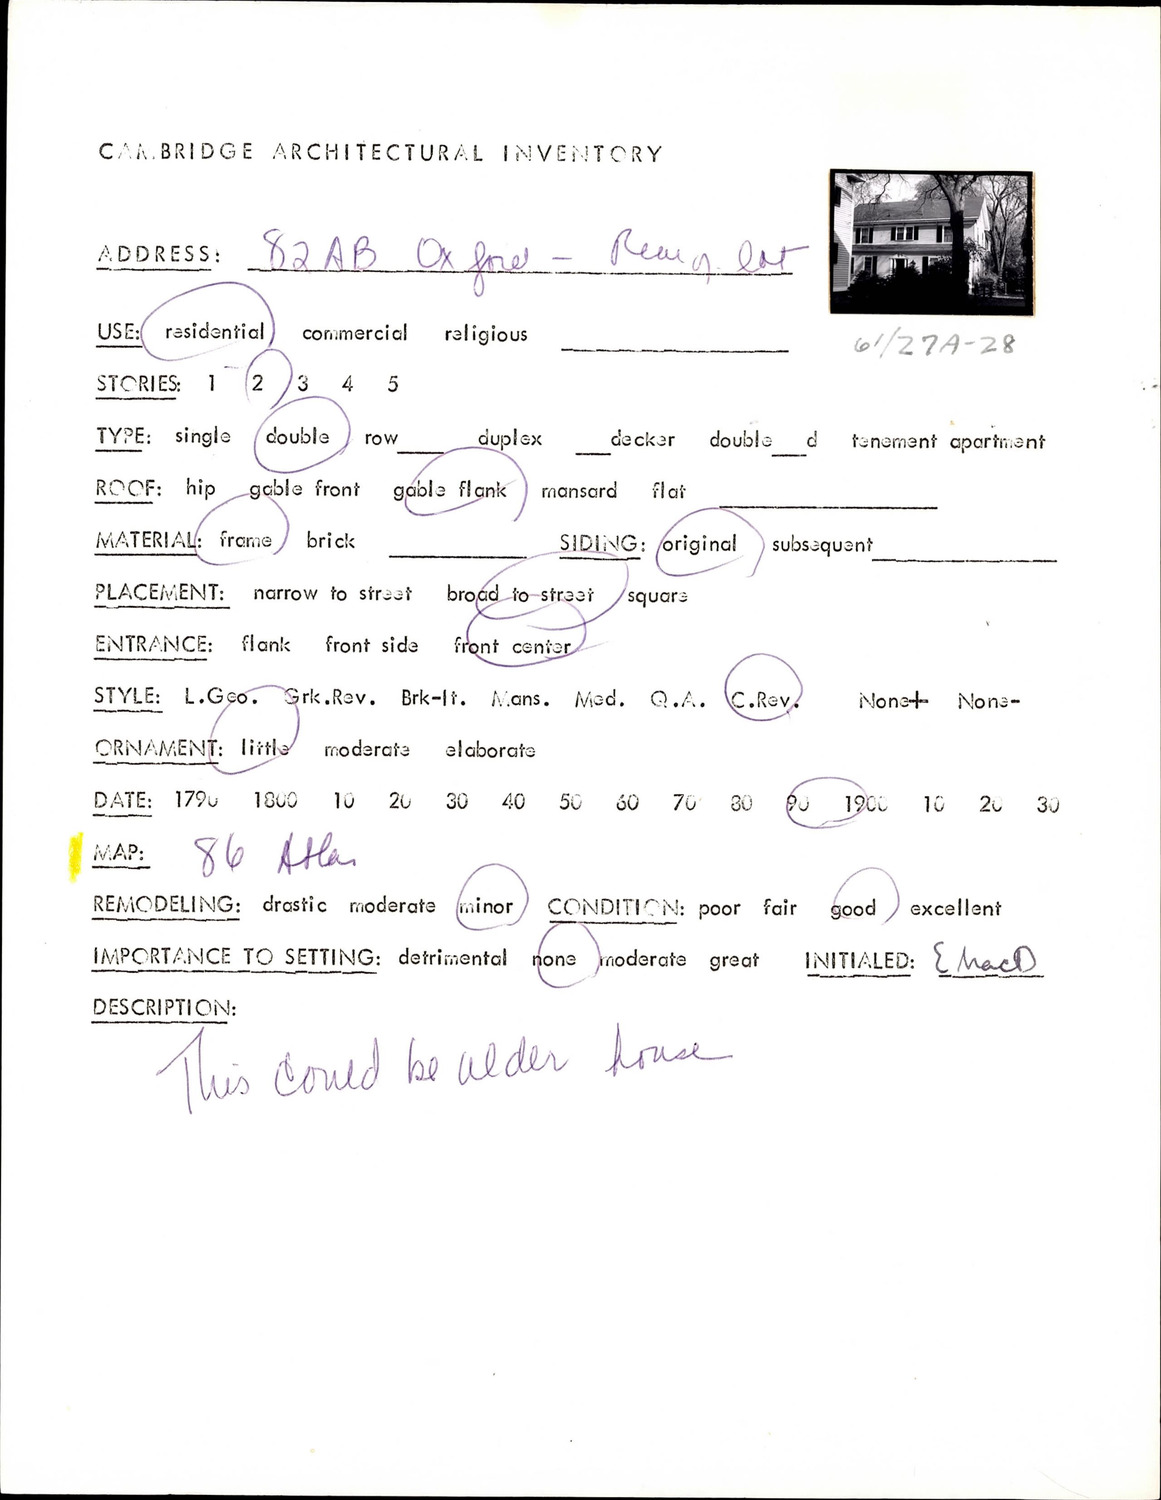 CAMBRIDGE ARCHITECTURAL INVENTORY
ADDRESS: 82 AB Oxford – Rear of lot
61/27A-28
USE: residential commercial religious
STORIES: 1 2 3 4 5
TYPE: single double row____ duplex ___decker double___d tenement apartment
ROOF: hip gable front gable flank mansard flat
MATERIAL: frame brick SIDING: original subsequent
PLACEMENT: narrow to street broad to street square
ENTRANCE: flank front side front center
STYLE: L.Geo. Grk.Rev. Brk-It. Mans. Med. Q.A. C.Rev. None+ None-
ORNAMENT: little moderate elaborate
DATE: 1790 1800 10 20 30 40 50 60 70 80 90 1900 10 20 30
MAP: 86 Atlas
REMODELING: drastic moderate minor CONDITION: poor fair good excellent
IMPORTANCE TO SETTING: detrimental none moderate great INITIALED: E MacD
DESCRIPTION:
This could be older house